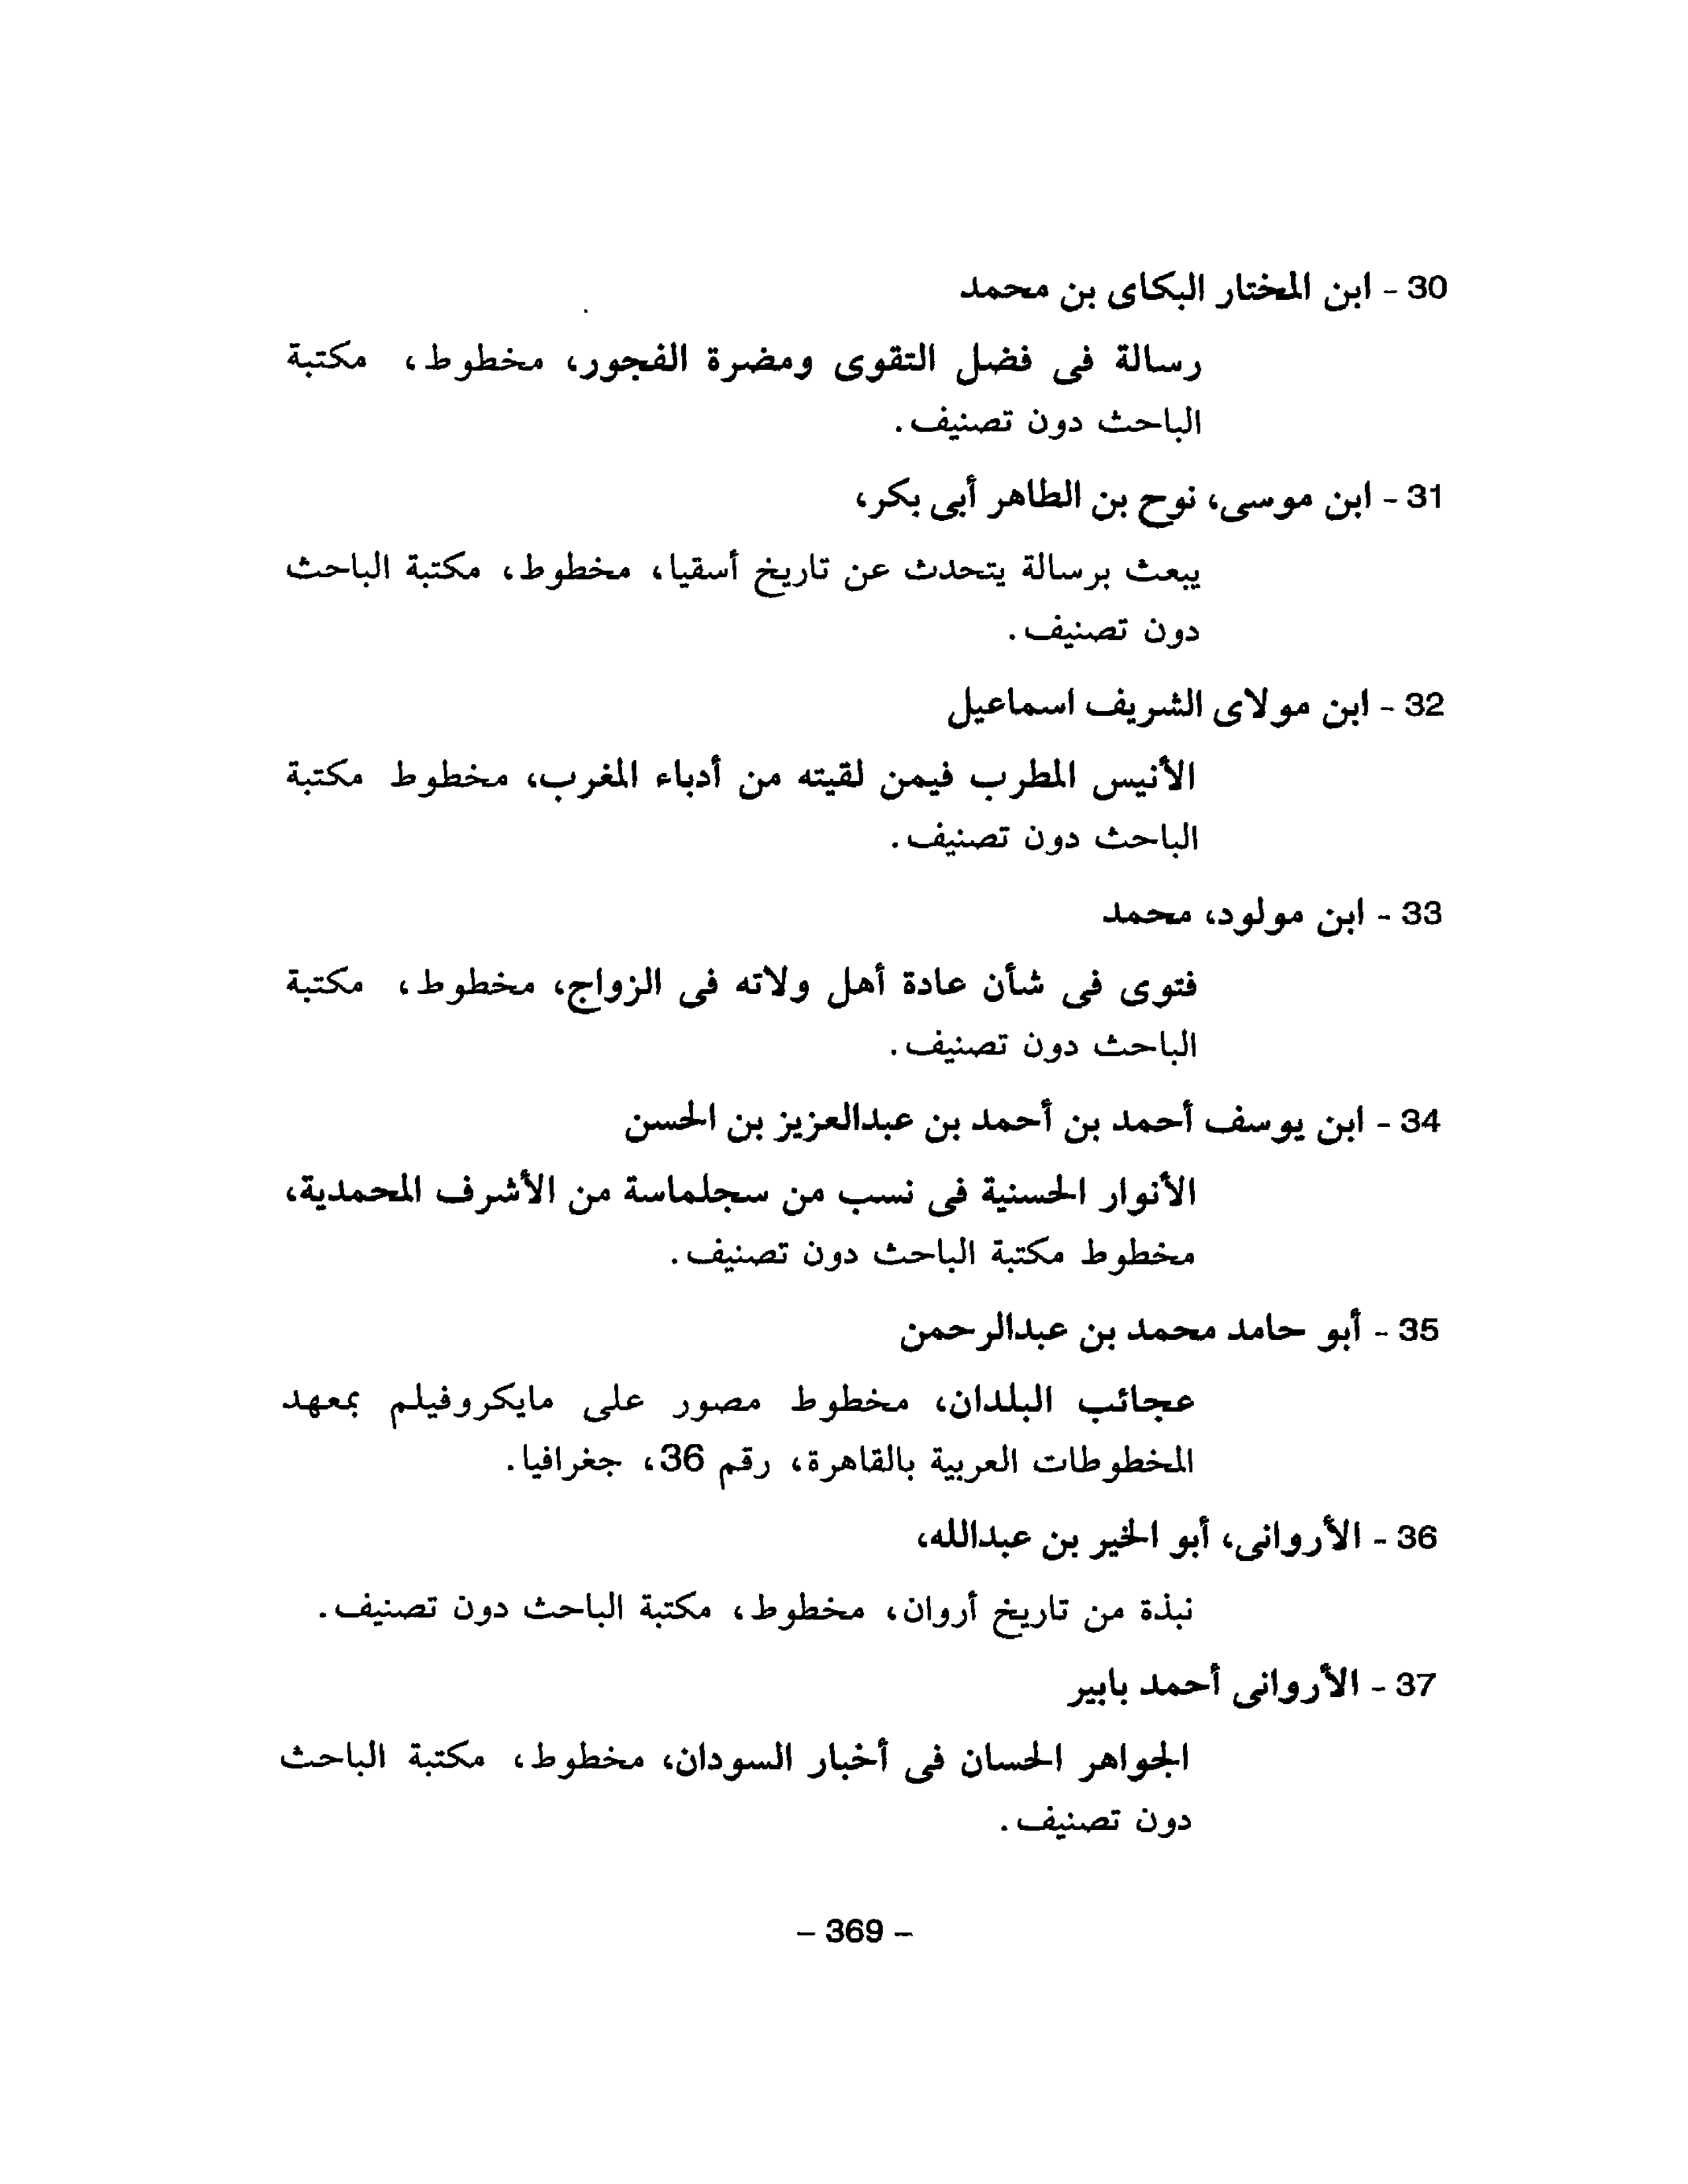 30 - ابن المختار البكاى بن محمد
رسالة فى فضل التقوى ومضرة الفجور، مخطوط، مكتبة
الباحث دون تصنيف.
31 - ابن موسى، نوح بن الطاهر أبى بكر،
يبعث برسالة يتحدث عن تاريخ أسقيا، مخطوط، مكتبة الباحث
دون تصنيف.
32 - ابن مولاى الشريف اسماعيل
الأنيس المطرب فيمن لقيته من أدباء المغرب، مخطوط مكتبة
الباحث دون تصنيف.
33 - ابن مولود، محمد
فتوى فى شأن عادة أهل ولاته فى الزواج، مخطوط، مكتبة
الباحث دون تصنيف.
34 - ابن يوسف أحمد بن أحمد بن عبدالعزيز بن الحسن
الأنوار الحسنية فى نسب من سجلماسة من الأشرف المحمدية،
مخطوط مكتبة الباحث دون تصنيف.
35 - أبو حامد محمد بن عبدالرحمن
عجائب البلدان، مخطوط مصور على مايكروفيلم بمعهد
المخطوطات العربية بالقاهرة، رقم 36، جغرافيا.
36 - الأروانى، أبو الخير بن عبدالله،
نبذة من تاريخ أروان، مخطوط، مكتبة الباحث دون تصنيف.
37 - الأروانى أحمد بابير
الجواهر الحسان فى أخبار السودان، مخطوط، مكتبة الباحث
دون تصنيف.
- 369 -